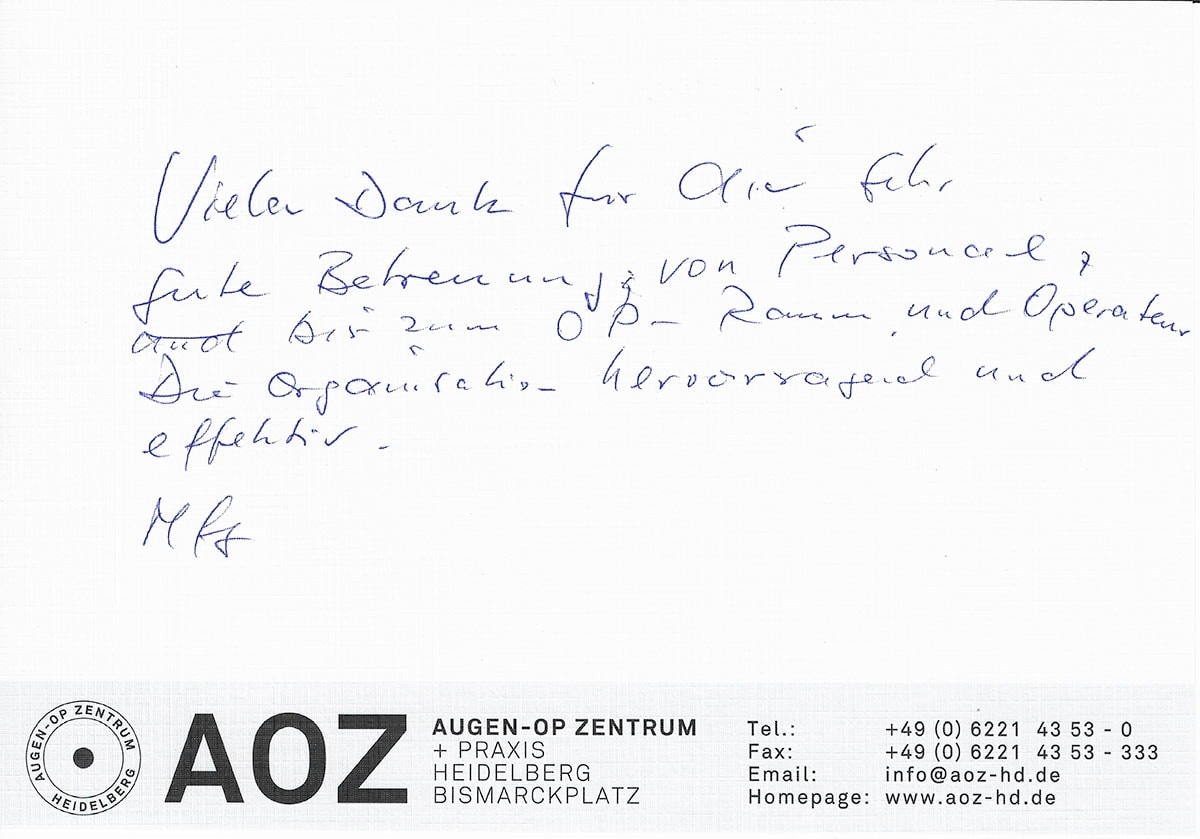 Vielen Dank für die sehr
gute Betreuung, von Personal,
und bis zum OP-Raum und Operateur
Die Organisation hervorragend und
effektiv.
Mfg
AUGEN-OP ZENTRUM
HEIDELBERG
AOZ
AUGEN-OP ZENTRUM
+ PRAXIS
HEIDELBERG
BISMARCKPLATZ
Tel.: +49 (0) 6221 43 53 - 0
Fax: +49 (0) 6221 43 53 - 333
Email: info@aoz-hd.de
Homepage: www.aoz-hd.de